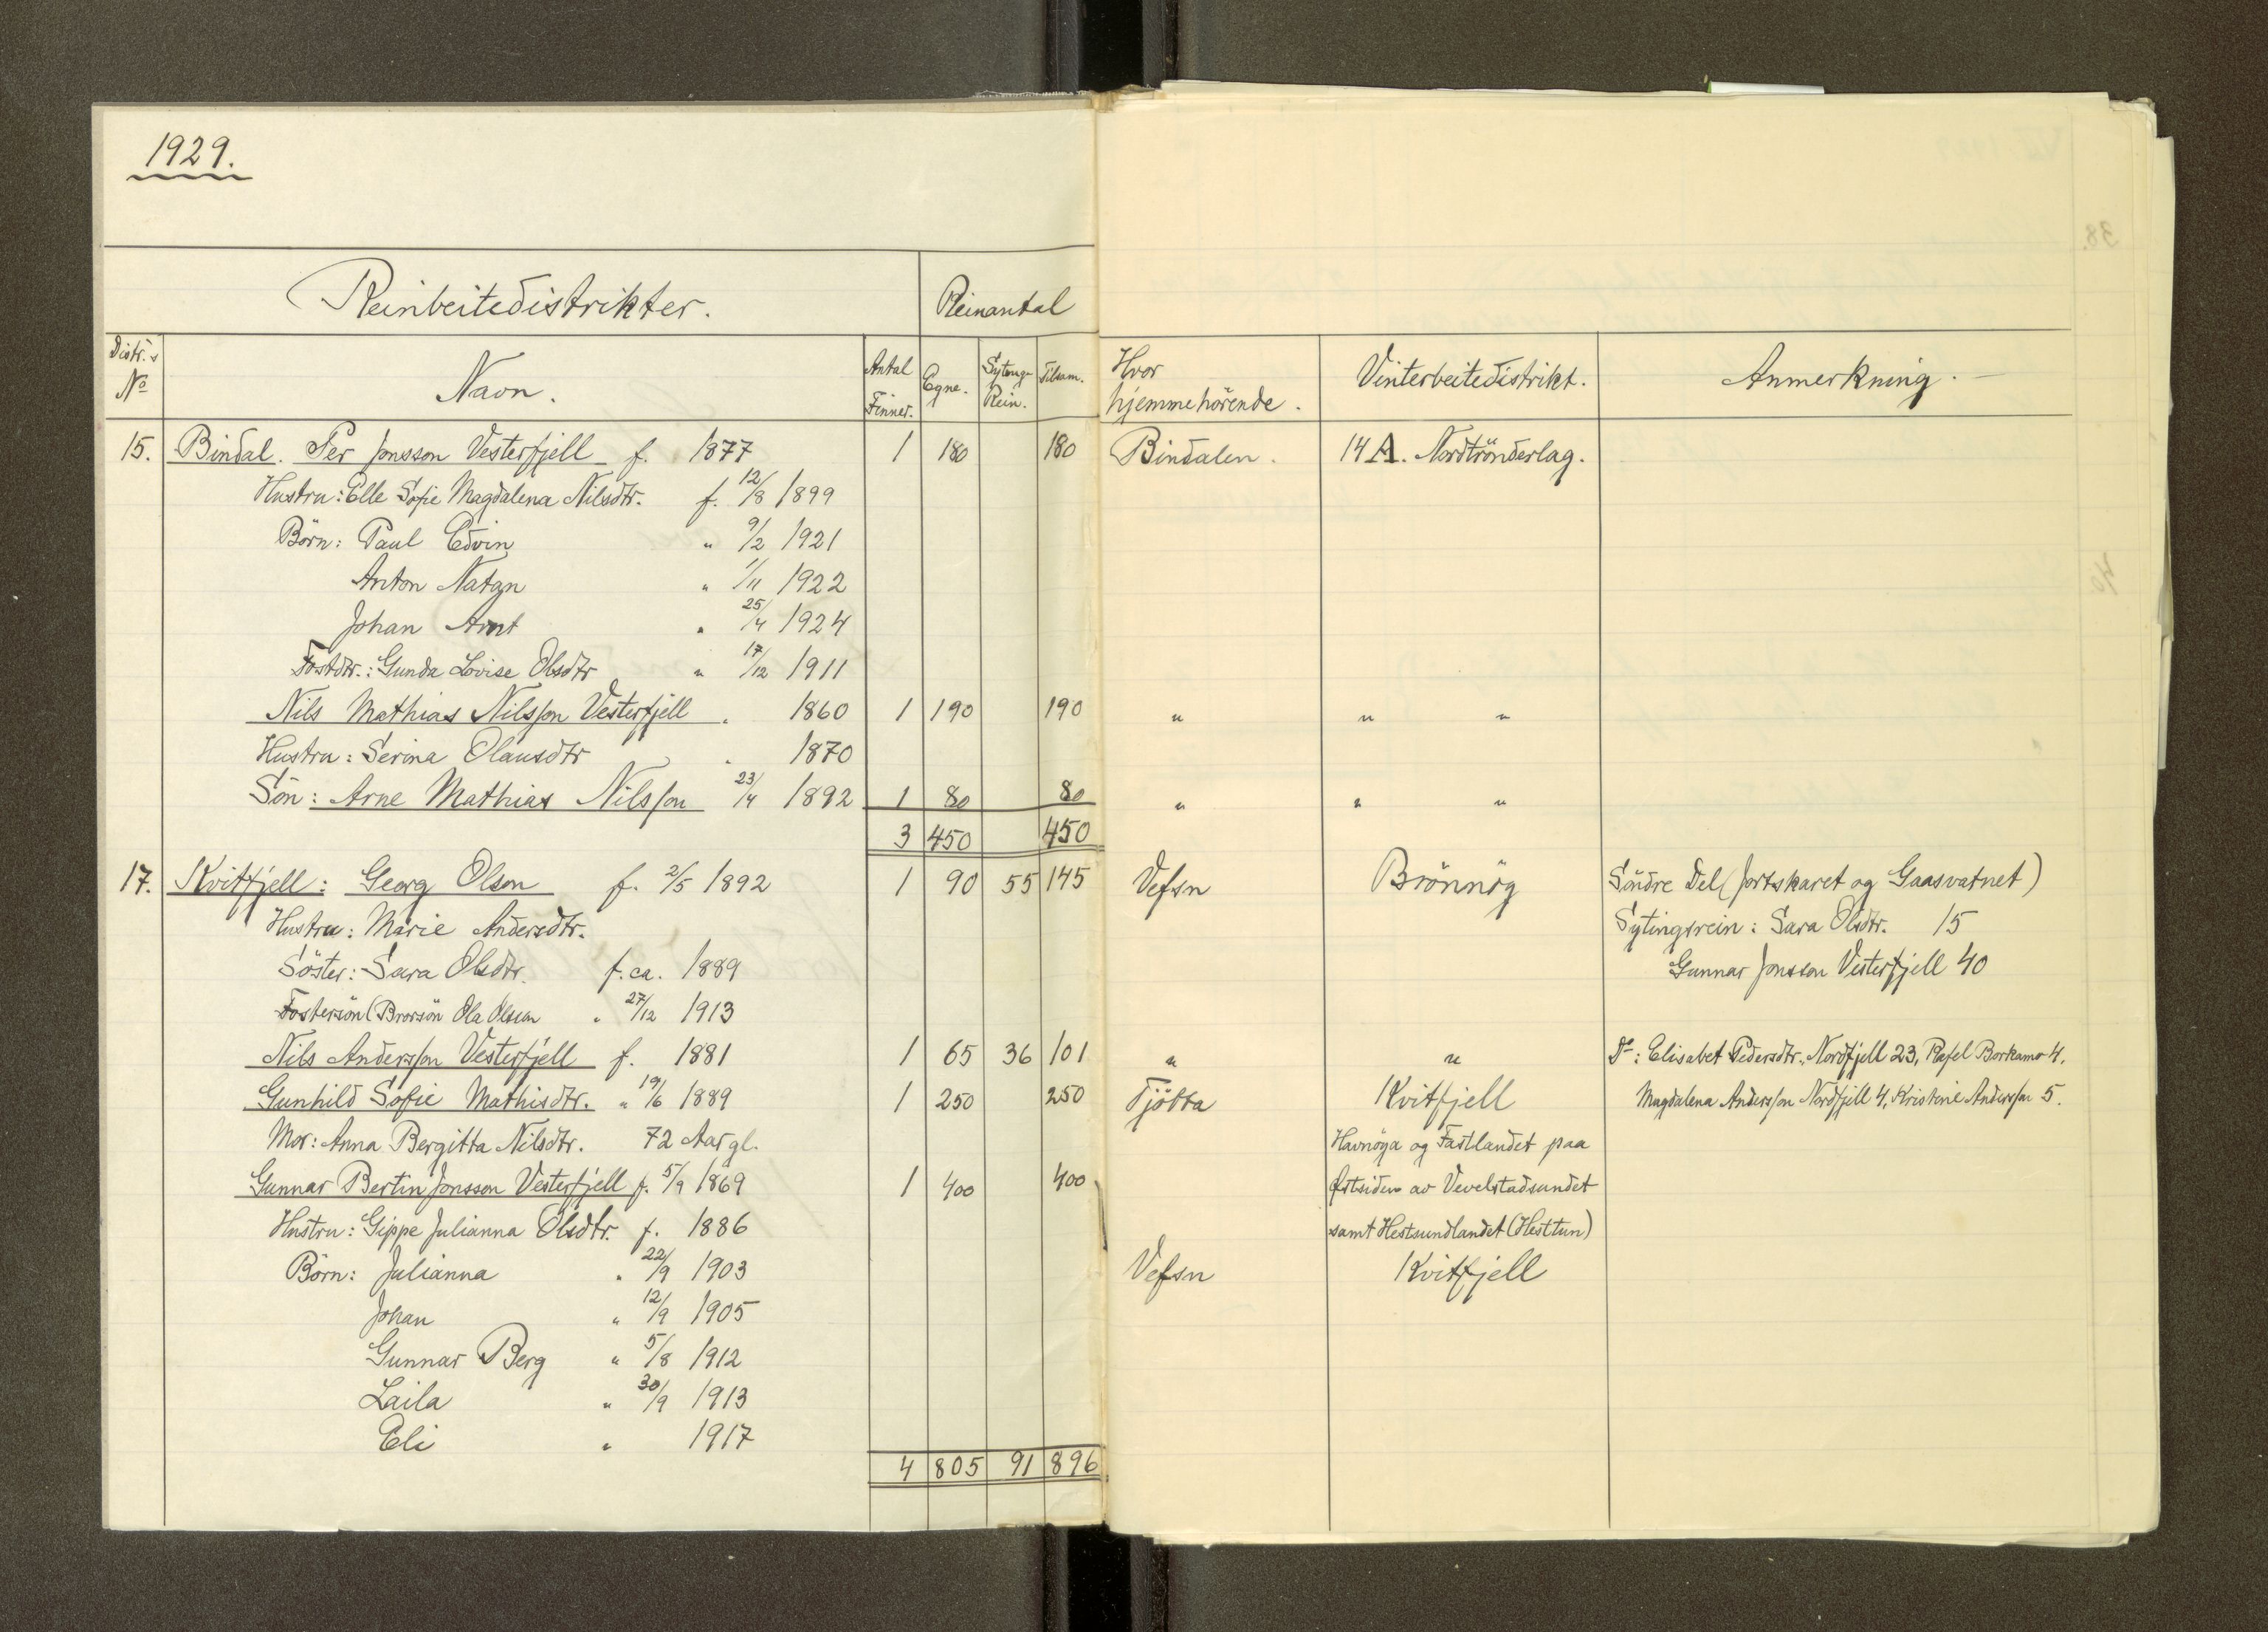 1929.
Reinbeitedistrikter. Reinantal
Distr.s No Navn. Antal Finner. Egne. Sytings Rein. Tilsam. Hvor hjemmehörende. Vinterbeitedistrikt. Anmerkning.
15. Bindal. Per Jonsson Vesterfjell f. 1877 1 180 180 Bindalen. 14 A. Nordtrönderlag.
Hustru: Elle Sofie Magdalena Nilsdtr. f. 12/8 1899
Börn: Paul Edvin " 9/2 1921
Anton Natan " 1/11 1922
Johan Arnt " 25/4 1924
Fostdtr.: Gunda Lovise Olsdtr " 17/12 1911
Nils Mathias Nilsson Vesterfjell " 1860 1 190 190 " " "
Hustru: Serina Olausdtr " 1870
Sön: Arne Mathias Nilsson 23/4 1892 1 80 80 " " "
3 450 450
17. Kvitfjell: Georg Olsen f. 2/5 1892 1 90 55 145 Vefsn Brönnög Söndre Del (Jortskaret og Gaasvatnet)
Hustru: Marie Andersdtr. Sytingsrein: Sara Olsdtr. 15
Söster: Sara Olsdtr. f. ca. 1889 Gunnar Jonsson Vesterfjell 40
Fostersön (Brorsön Ola Olsen " 27/12 1913
Nils Andersson Vesterfjell f. 1881 1 65 36 101 " " Do: Elisabet Pedersdtr. Nordfjell 23, Rafel Borkamo 4.
Gunhild Sofie Mathisdtr. " 19/6 1889 1 250 250 Tjötta Kvitfjell Magdalena Andersson Nordfjell 4, Kristine Andersson 5.
Mor: Anna Bergitta Nilsdtr. 72 Aar gl. Havnöya og Fastlandet paa
Gunnar Bertin Jonsson Vesterfjell f. 5/9 1869 1 400 400 Östsiden av Vevelstadsundet
Hustru: Gippe Julianna Olsdtr. f. 1886 samt Hestsundlandet (Hesttun)
Börn: Julianna " 22/9 1903 Vefsn Kvitfjell
Johan " 12/9 1905
Gunnar Berg " 5/8 1912
Laila " 30/9 1913
Eli " 1917
4 805 91 896